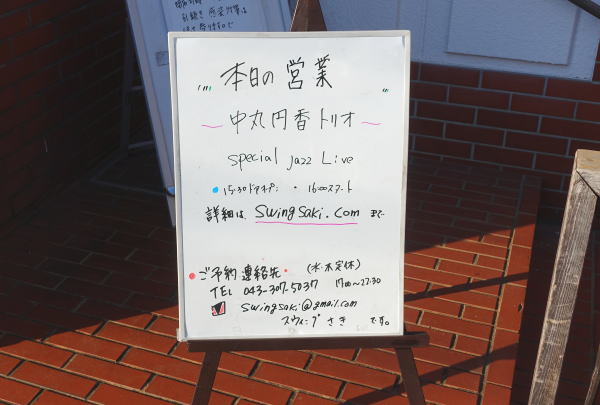 引続き感染対策は
本日の営業
〜中丸円香トリオ〜
special jazz Live
・15:30ドアオープン ・16:00スタート
詳細は swingsaki.com まで
・ご予約連絡先・ (水・木定休)
TEL 043-307-5037 17:00〜22:30
swingsaki@gmail.com
スウィングさき です。